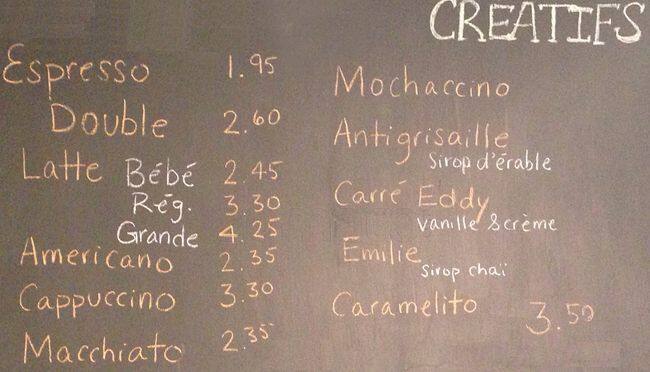 Espresso 1.95
Double 2.60
Latte Bébé 2.45
Rég. 3.30
Grande 4.25
Americano 2.35
Cappuccino 3.30
Macchiato 2.35
CREATIFS
Mochaccino
Antigrisaille
Sirop d'érable
Carré Eddy
Vanille & crème
Emilie
Sirop chaï
Caramelito 3.50